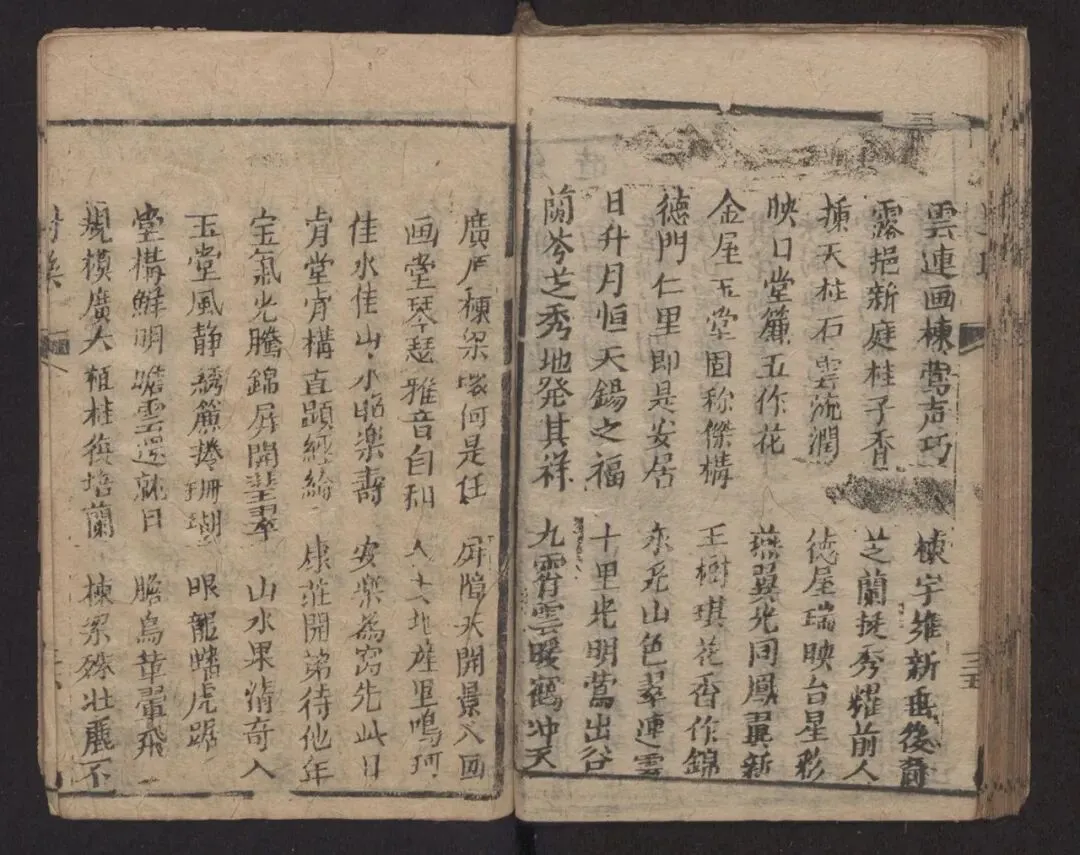 雲連画棟莺声巧　棟宇維新垂後裔
露挹新庭桂子香　芝蘭挺秀耀前人
擂天柱石雲流潤　徳屋瑞映台星彩
映日堂簾五作花　燕翼光同鳳翼新
金屋玉堂固称傑構　玉樹琪花香作錦
徳門仁里即是安居　水光山色翠連雲
日升月恒天錫之福　十里光明莺出谷
蘭岑芝秀地発其祥　九霄雲暖鶴冲天
廣厦棟梁　何是任　屏障大開景入画
画堂琴瑟雅音自和　人士地產里鳴珂
佳水佳山山水昭楽壽　安楽為窩先此日
肯堂肯構直顕経綸　康荘開第待他年
宝氣光騰錦屏開翠　山水果清奇入
玉堂風静綉簾捲珊瑚　眼龍蟠虎踞
堂構鮮明瞻雲還就日　瞻烏革翬飛
規模廣大植桂復培蘭　棟梁殊壮麗不